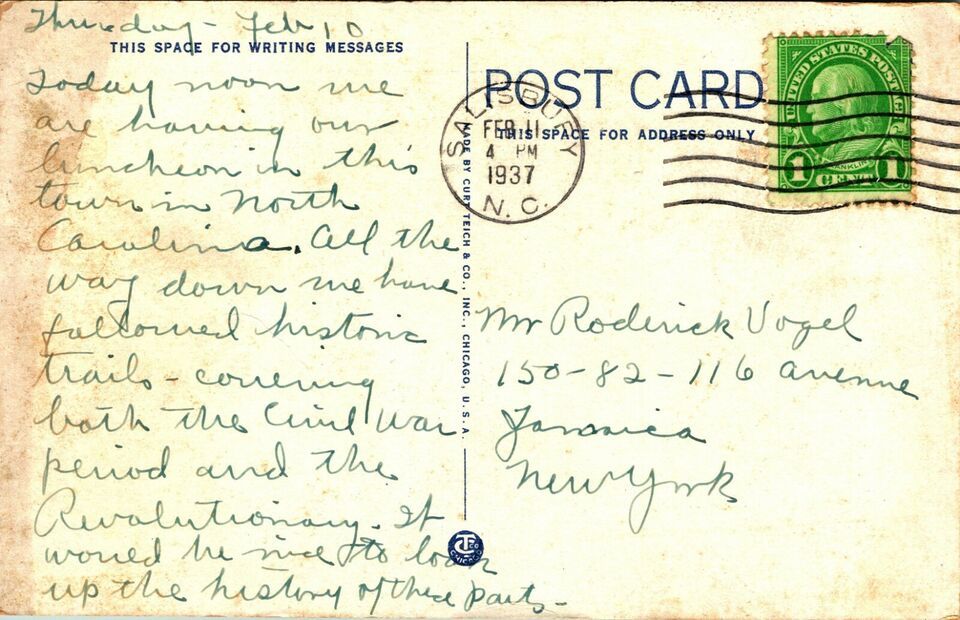 Thursday - Feb 10
THIS SPACE FOR WRITING MESSAGES
Today noon we
are having our
luncheon in this
town in North
Carolina. All the
way down we have
followed historic
trails - covering
both the Civil War
period and the
Revolutionary. It
would be nice to look
up the history of these parts -
MADE BY CURT TEICH & CO., INC., CHICAGO, U.S.A.
CT CO
CHICAGO
POST CARD
THIS SPACE FOR ADDRESS ONLY
SALISBURY
FEB 11
4 PM
1937
N. C.
UNITED STATES POSTAGE
FRANKLIN
1 CENT 1
Mr Roderick Vogel
150-82-116 Avenue
Jamaica
New York